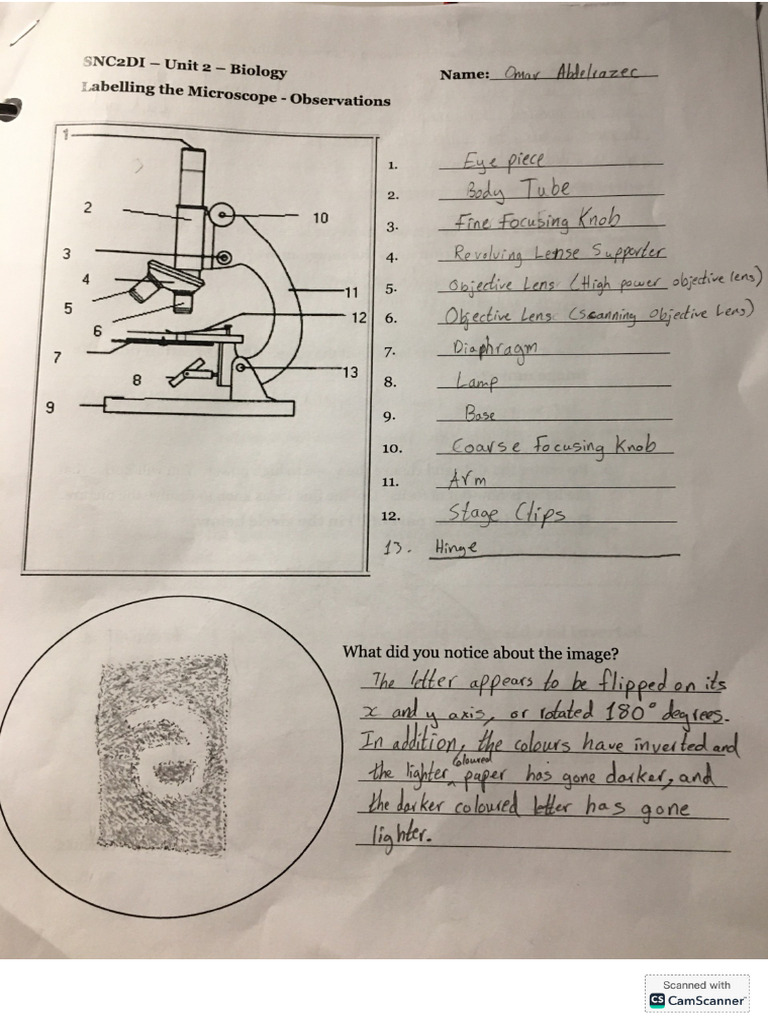 SNC2DI – Unit 2 – Biology
Name: Omar Abdelrazec
Labelling the Microscope - Observations
1
2
3
4
5
6
7
8
9
10
11
12
13
1. Eye piece
2. Body Tube
3. Fine Focusing Knob
4. Revolving Lense Supporter
5. Objective Lens (High power objective lens)
6. Objective Lens (Scanning Objective Lens)
7. Diaphragm
8. Lamp
9. Base
10. Coarse Focusing Knob
11. Arm
12. Stage Clips
13. Hinge
What did you notice about the image?
The letter appears to be flipped on its
x and y axis, or rotated 180° degrees.
In addition, the colours have inverted and
the lighter coloured paper has gone darker, and
the darker coloured letter has gone
lighter.
Scanned with
CS CamScanner